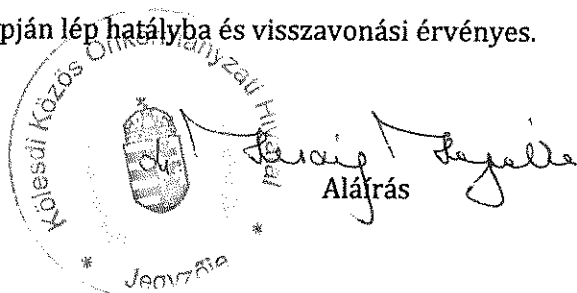 pján lép hatályba és visszavonási érvényes.
Kölesdi Közös Önkormányzati Hivatal
* Jegyzője *
dr.
Aláírás